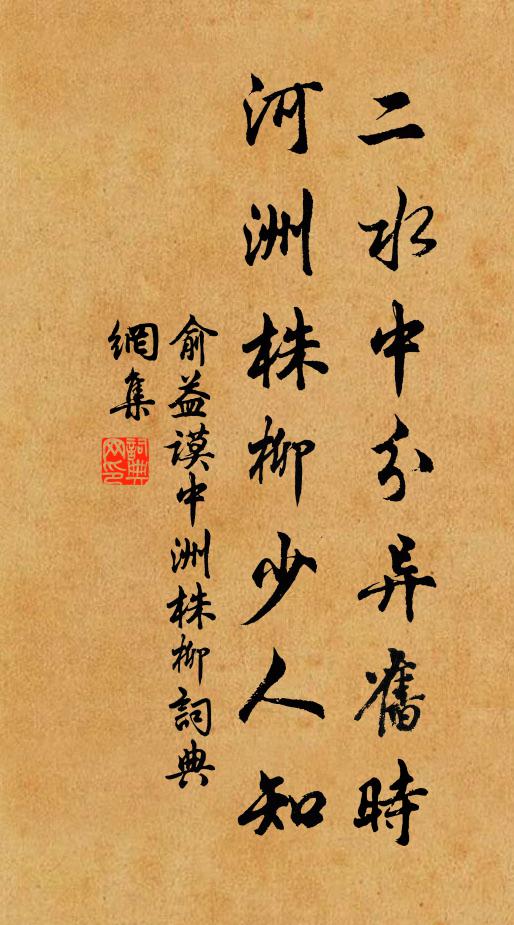 二水中分异舊時
河洲株柳少人知
俞益謨中洲株柳詞典
網集
詞典
网印